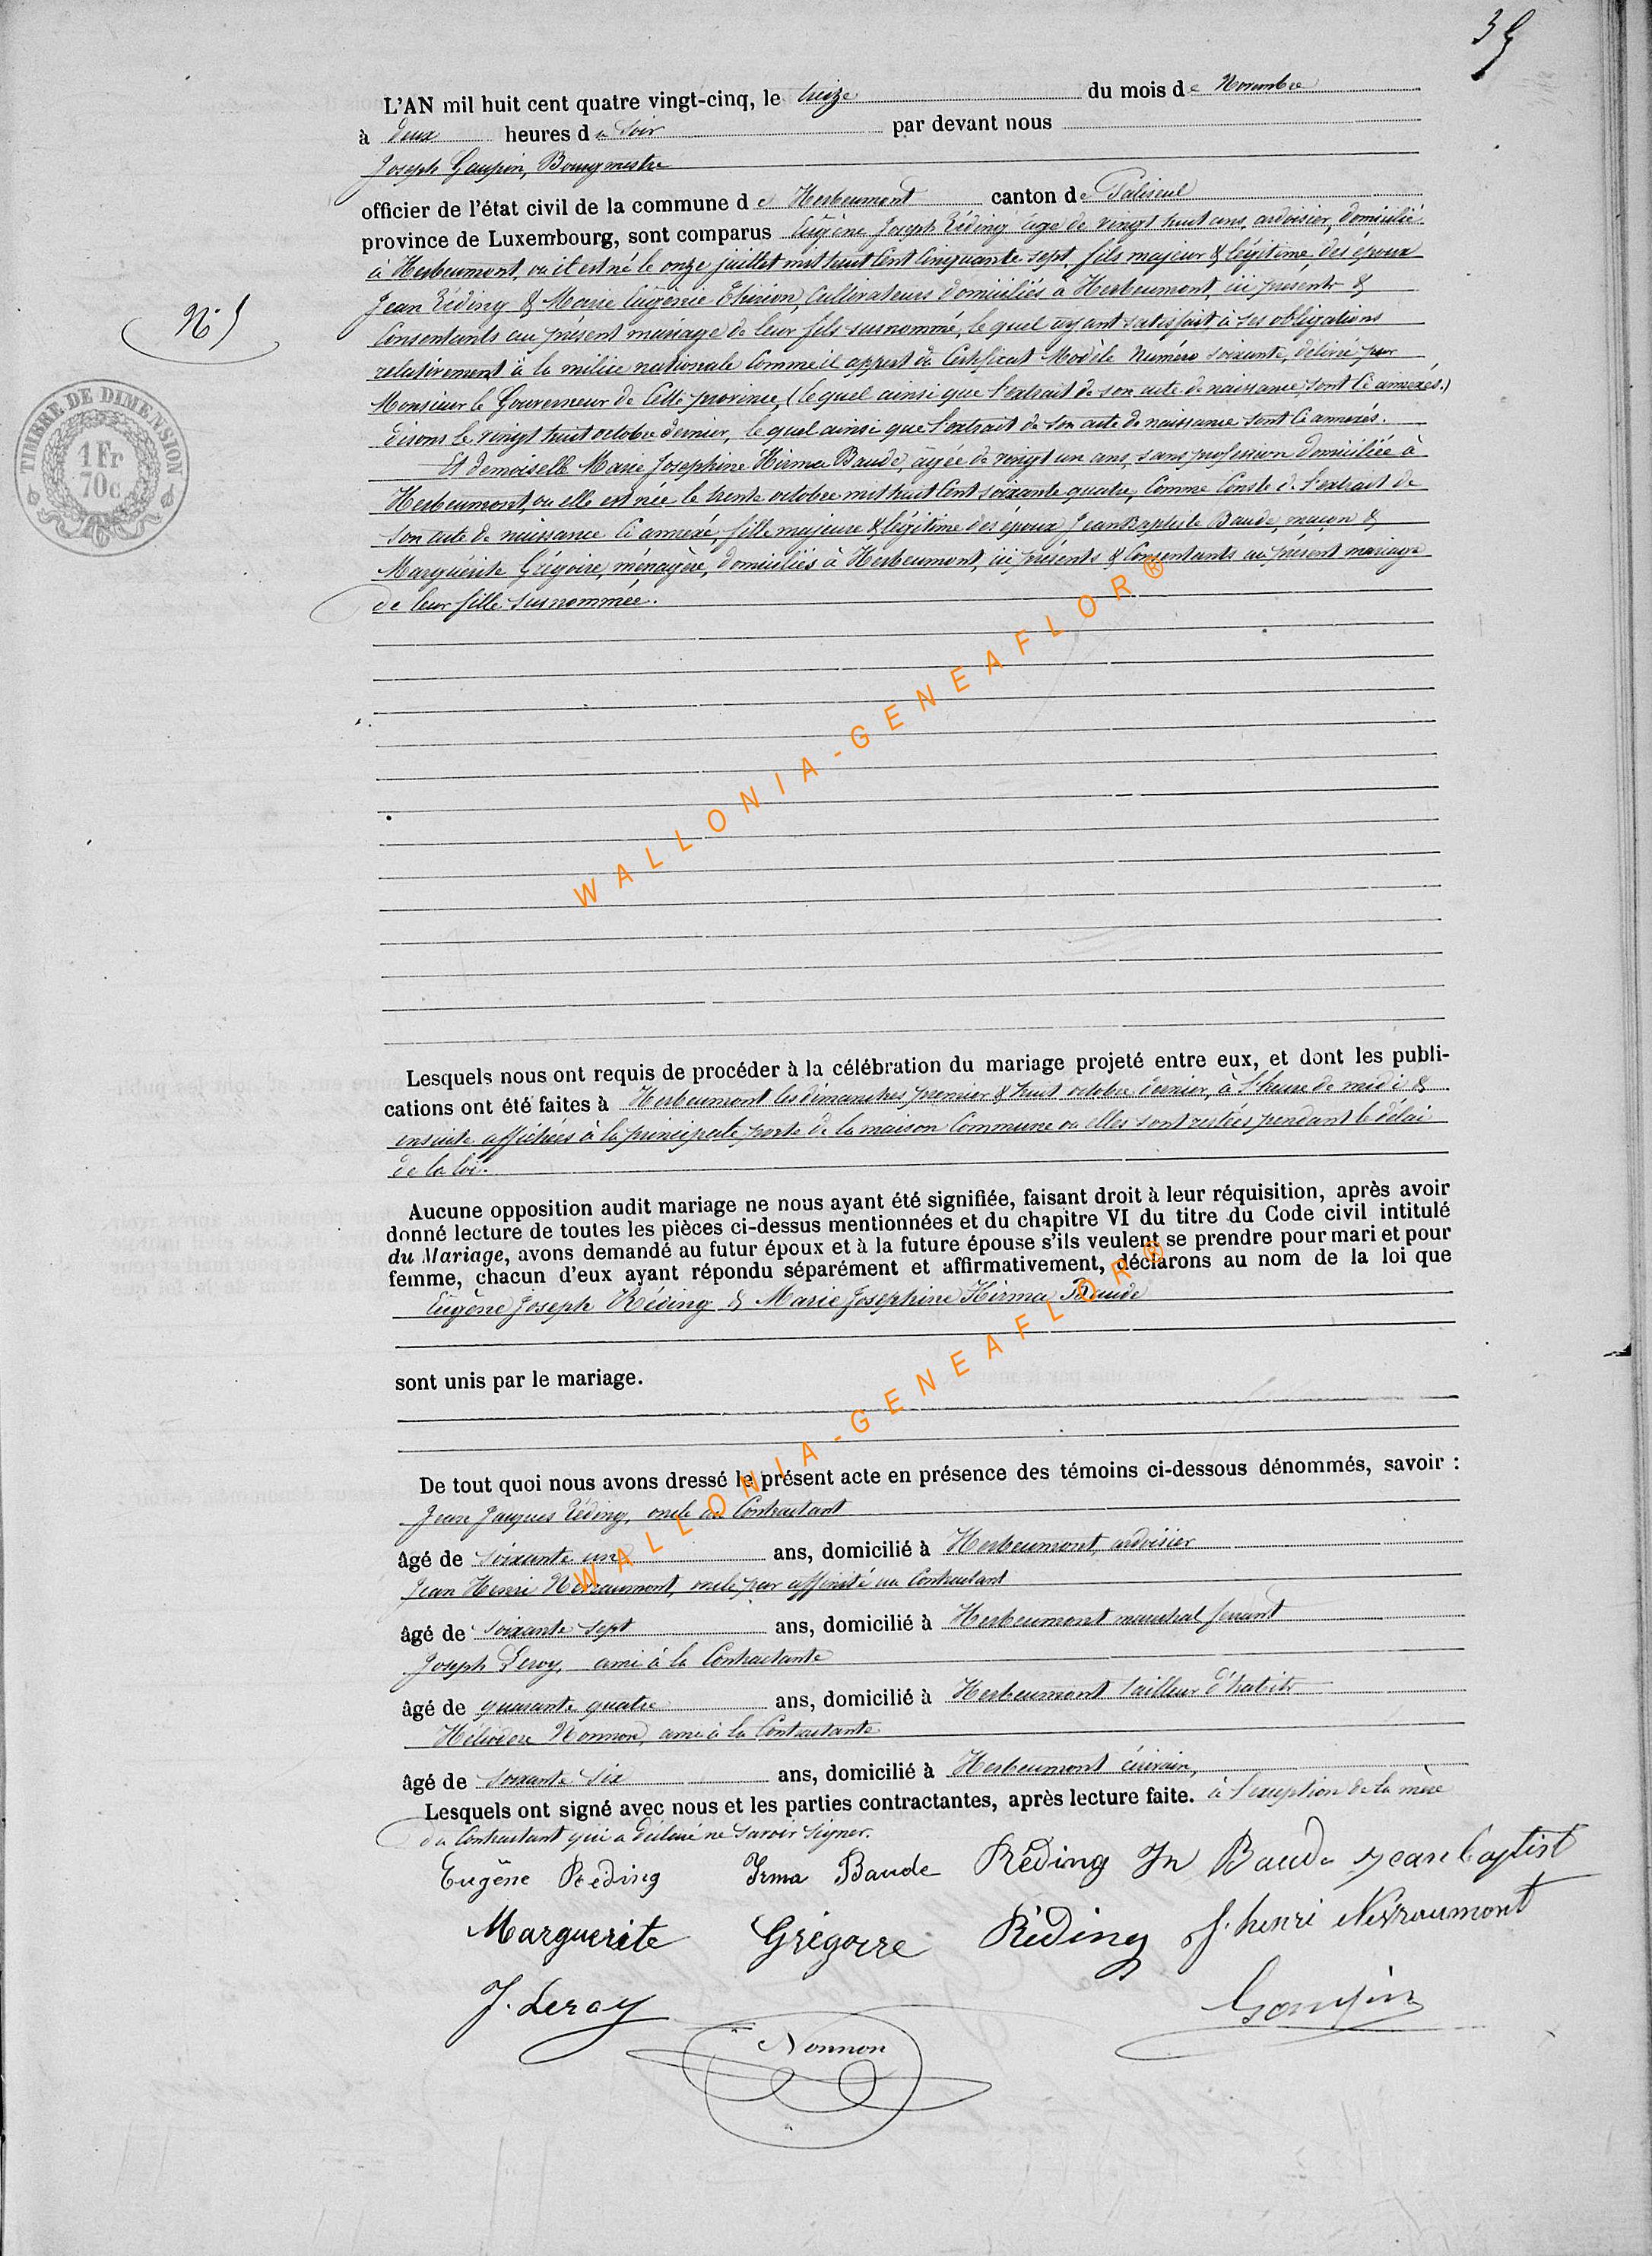 35
L'AN mil huit cent quatre vingt-cinq, le treize du mois de Novembre
à deux heures du Soir par devant nous
Joseph Gaupin, Bourgmestre
officier de l'état civil de la commune de Herbeumont canton de Paliseul
province de Luxembourg, sont comparus Eugène Joseph Réding âgé de vingt huit ans, ardoisier, domicilié
à Herbeumont, où il est né le onze juillet mil huit cent cinquante sept, fils majeur & légitime, des époux
Jean Réding & Marie Eugénie Thirion, Cultivateurs domiciliés à Herbeumont, ici présents &
Consentants au présent mariage de leur fils susnommé, le quel ayant satisfait à ses obligations
relativement à la milice nationale comme il appert du Certificat Modèle Numéro soixante, délivré par
Monsieur le Gouverneur de cette province, (le quel ainsi que l'extrait de son acte de naissance, sont ci annexés.)
disons le vingt huit octobre dernier, le quel ainsi que l'extrait de son acte de naissance sont ci annexés.
Et demoiselle Marie Josephine Hirma Baude, âgée de vingt un ans, sans profession domiciliée à
Herbeumont, où elle est née le trente octobre mil huit cent soixante quatre, comme conste de l'extrait de
son acte de naissance ci annexé, fille majeure & légitime des époux Jean Baptiste Baude, maçon &
Marguérite Grégoire, ménagère, domiciliés à Herbeumont, ici présents & Consentants au présent mariage
de leur fille susnommée.
N° 5
TIMBRE DE DIMENSION
1 Fr
70c
WALLONIA-GENEAFLOR®
Lesquels nous ont requis de procéder à la célébration du mariage projeté entre eux, et dont les publi-
cations ont été faites à Herbeumont les dimanches premier & huit octobre dernier, à l'heure de midi &
ensuite affichées à la principale porte de la maison Commune où elles sont restées pendant le délai
de la loi.
Aucune opposition audit mariage ne nous ayant été signifiée, faisant droit à leur réquisition, après avoir
donné lecture de toutes les pièces ci-dessus mentionnées et du chapitre VI du titre du Code civil intitulé
du Mariage, avons demandé au futur époux et à la future épouse s'ils veulent se prendre pour mari et pour
femme, chacun d'eux ayant répondu séparément et affirmativement, déclarons au nom de la loi que
Eugène Joseph Réding & Marie Josephine Hirma Baude
sont unis par le mariage.
WALLONIA-GENEAFLOR®
De tout quoi nous avons dressé le présent acte en présence des témoins ci-dessous dénommés, savoir :
Jean Jacques Réding, oncle au Contractant
âgé de soixante un ans, domicilié à Herbeumont, ardoisier
Jean Henri Nexraumont, oncle par affinité au Contractant
âgé de soixante sept ans, domicilié à Herbeumont maréchal ferrant
Joseph Leroy, ami à la Contractante
âgé de quarante quatre ans, domicilié à Herbeumont tailleur d'habits
Héliodore Nonnon, ami à la Contractante
âgé de soixante six ans, domicilié à Herbeumont écrivain,
Lesquels ont signé avec nous et les parties contractantes, après lecture faite. à l'exception de la mère
du Contractant qui a déclaré ne savoir signer.
Eugêne Réding Irma Baude Rêding Jn Baude jean baptist
Marguerite Grégoire Réding j. henri Nexraumont
J. Leroy Gaupin
Nonnon